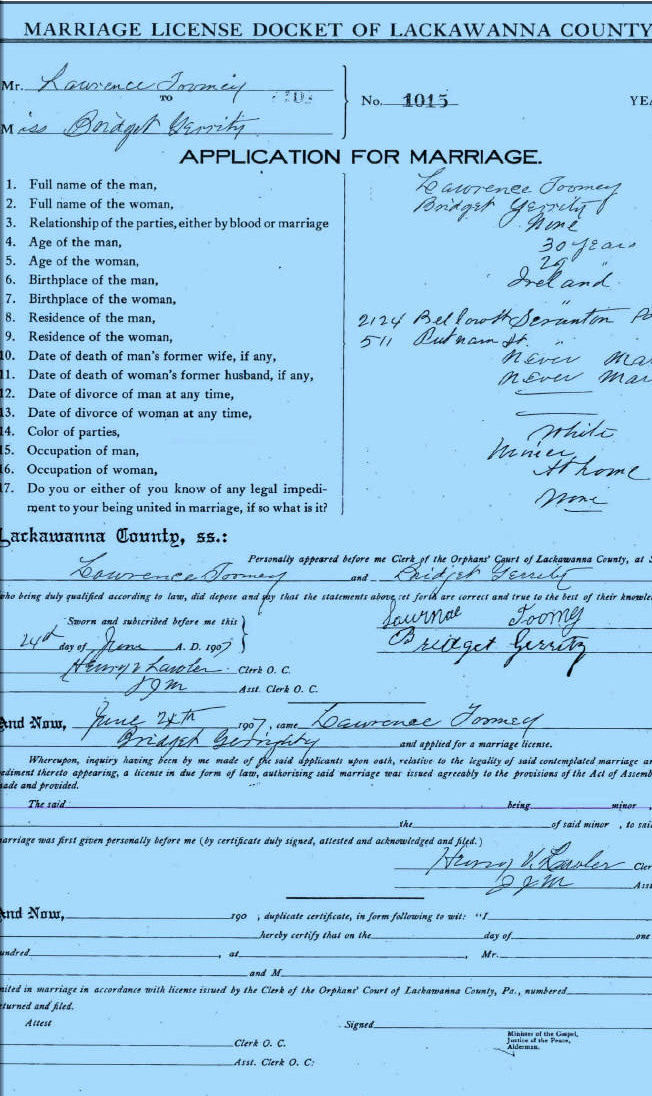 MARRIAGE LICENSE DOCKET OF LACKAWANNA COUNTY
Mr. Lawrence Toomey
TO
No. 1015 YEA
Miss Bridget Gerrity
APPLICATION FOR MARRIAGE.
1. Full name of the man, Lawrence Toomey
2. Full name of the woman, Bridget Gerrity
3. Relationship of the parties, either by blood or marriage None
4. Age of the man, 30 years
5. Age of the woman, 29 "
6. Birthplace of the man, Ireland
7. Birthplace of the woman, "
8. Residence of the man, 2124 Scranton Pa
9. Residence of the woman, 511 Putnam St. "
10. Date of death of man's former wife, if any, never Mar
11. Date of death of woman's former husband, if any, never Mar
12. Date of divorce of man at any time,
13. Date of divorce of woman at any time,
14. Color of parties, White
15. Occupation of man, Miner
16. Occupation of woman, At home
17. Do you or either of you know of any legal impedi-
ment to your being united in marriage, if so what is it? None
Lackawanna County, ss.:
Personally appeared before me Clerk of the Orphans' Court of Lackawanna County, at S
Lawrence Toomey and Bridget Gerrity
who being duly qualified according to law, did depose and say that the statements above set forth are correct and true to the best of their knowle
Sworn and subscribed before me this Toomey
24th day of June A. D. 1907 Bridget Gerrity
Henry V Lawler Clerk O. C.
JJM Asst. Clerk O. C.
And Now, June 24th 1907, came Lawrence Toomey
Bridget Gerrighty and applied for a marriage license.
Whereupon, inquiry having been by me made of the said applicants upon oath, relative to the legality of said contemplated marriage an
pediment thereto appearing, a license in due form of law, authorising said marriage was issued agreeably to the provisions of the Act of Assemb
ade and provided.
The said being minor ,
the of said minor , to said
arriage was first given personally before me (by certificate duly signed, attested and acknowledged and filed.)
Henry V. Lawler Cler
JJM Asst
And Now, 190 , duplicate certificate, in form following to wit: "I
hereby certify that on the day of one
undred , at , Mr.
and M
nited in marriage in accordance with license issued by the Clerk of the Orphans' Court of Lackawanna County, Pa., numbered
eturned and filed.
Attest Signed
Minister of the Gospel,
Justice of the Peace,
Alderman.
Clerk O. C.
Asst. Clerk O. C: